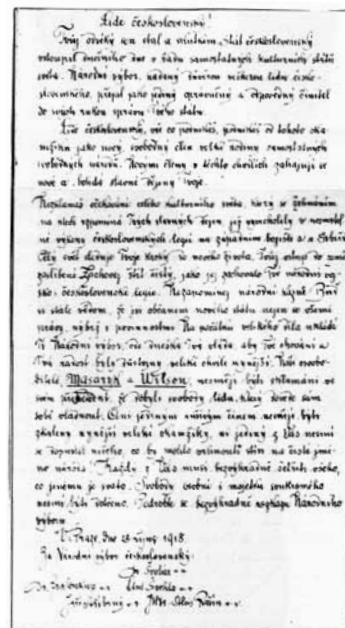 Lide československý!
Tvůj odvěký sen stal se skutkem. Stát československý
vstoupil dnešního dne v řadu samostatných kulturních států
světa. Národní výbor, nadaný důvěrou veškerého lidu česko-
slovenského, přejal jako jediný oprávněný a odpovědný činitel
do svých rukou správu svého státu.
Lide československý, vše co podnikáš, podnikáš od tohoto oka-
mžiku jako nový svobodný člen velké rodiny samostatných
svobodných národů. Novými činy v těchto chvílích zahajují se
nové a bohdá slavné dějiny Tvoje.
Nezklameš očekávání celého kulturního světa, který se žehnáním
na rtech vzpomíná Tvých slavných dějin, jež vyvrcholily v nesmrtel-
né výkony československých legií na západním bojišti a v Sibiři.
Celý svět sleduje Tvoje kroky do nového života, Tvůj vstup do země
zaslíbené. Zachovej štít čistý, jako jej zachovalo Tvé národní voj-
sko: československá legie. Nezapomínej národní kázně. Buď
si stále vědom, že jsi občanem nového státu nejen se všemi
právy, nýbrž i povinnostmi. Na počátku velikého díla ukládá
Ti Národní výbor, ode dneška Tvá vláda, aby Tvé chování a
Tvá radost byly důstojny velké chvíle nynější. Naši osvobo-
ditelé, Masaryk a Wilson, nesmějí býti zklamáni ve
svém přesvědčení, že dobyli svobody lidu, který dovede sám
sobě vládnout. Ani jediným rušivým činem nesmějí býti
zkaleny nynější veliké okamžiky, ani jediný z Vás nesmí
se dopustiti ničeho, co by mohlo vrhnouti stín na čisté jmé-
no národa. Každý z Vás musí bezvýhradně šetřiti všeho,
co jinému je svato. Svobody osobní a majetku soukromého
nesmí býti dotčeno. Podrobte se bezvýhradně rozkazu Národního
výboru.
V Praze, dne 28. října 1918.
Za Národní výbor československý:
Ant. Švehla
Jiří Stříbrný